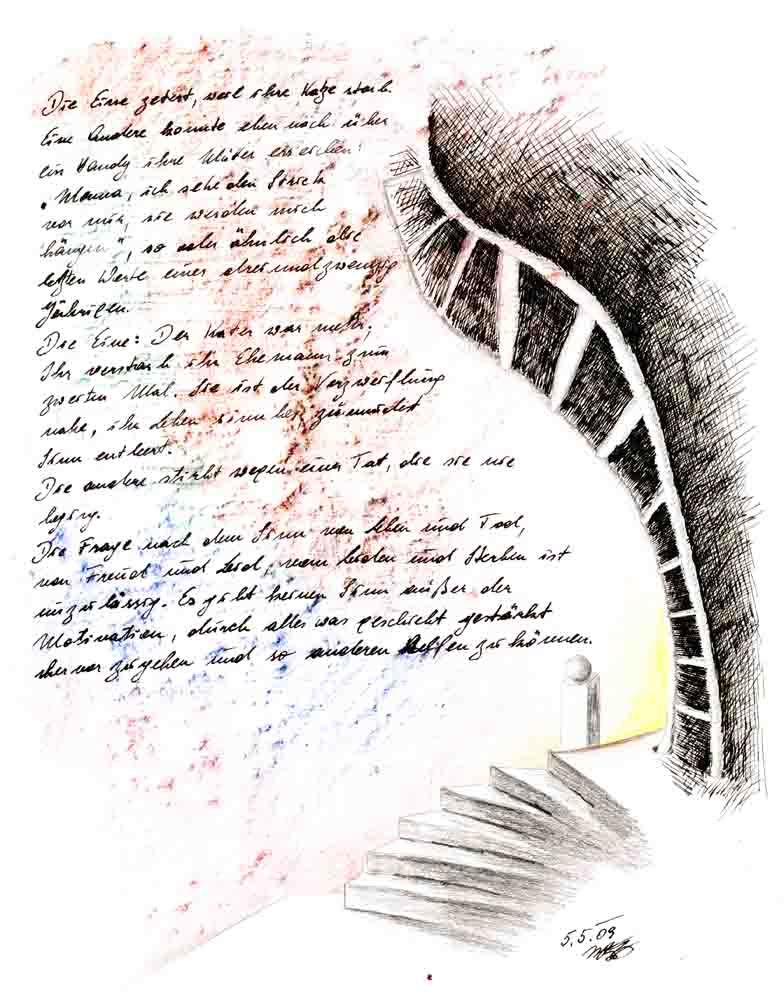 Die Eine zetert, weil ihre Katze starb.
Eine Andere konnte eben noch über
ein Handy ihre Mutter erreichen:
"Mama, ich sehe den Strick
vor mir, sie werden mich
hängen", so oder ähnlich die
letzten Worte einer dreiundzwanzig
Jährigen.
Die Eine: Der Kater war mehr,
Ihr verstarb ihr Ehemann zum
zweiten Mal. Sie ist der Verzweiflung
nahe, ihr Leben sinnlos, zumindest
Sinn entleert.
Die andere stirbt wegen einer Tat, die sie nie
beging.
Die Frage nach dem Sinn von Leben und Tod,
von Freud und Leid, vom Leiden und Sterben ist
unzulässig. Es gibt keinen Sinn außer der
Motivation, durch alles was geschieht gestärkt
hervor zu gehen und so anderen helfen zu können.
5.5.09